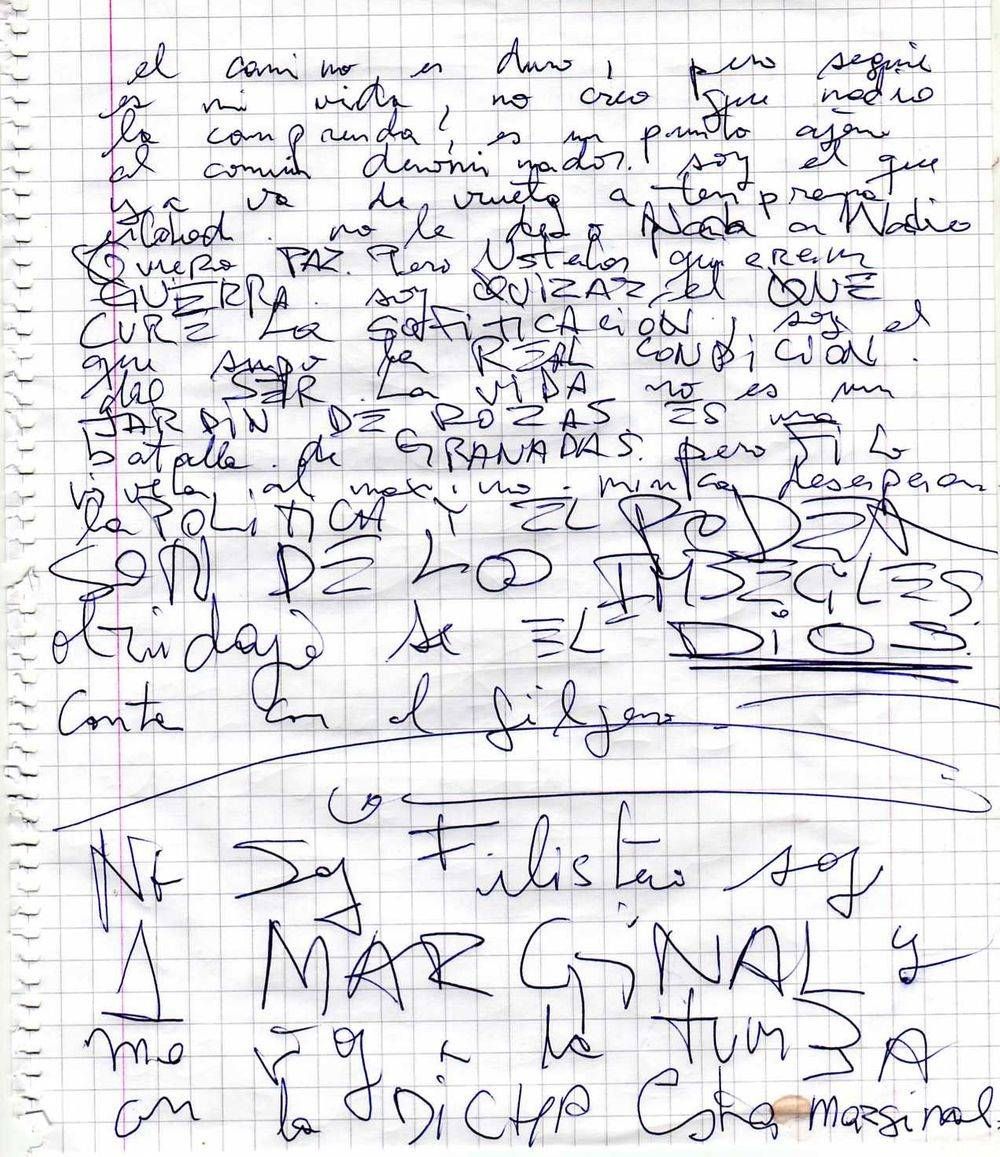 el camino, es duro, pero seguir
es mi vida, no creo que nadie
la comprenda, es un punto ajeno
al comun denominador. soy el que
ya va de vuelta a temprana
edad. no le debo Nada a Nadie
Quiero PAZ. Pero Ustedes quieren
GUERRA. soy QUIZAZ el QUE
CURE La SOFITICACION, soy el
que supo la REAL CONDICION.
del SER. La VIDA no es un
JARDIN DE ROZAS ES una
batalla de GRANADAS. pero
al maximo. nunca desesperar
la POLITICA Y EL PODER
SON DE LOS IMBECILES
se EL DIOS.
Conta con el
No Soy Filisteo soy
1 MARGINAL y
me voy a la tumBA
con la DICHA marginal.